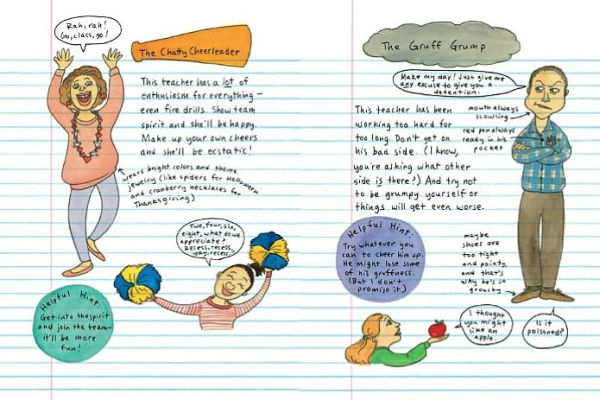 Rah, rah!
Go, class, go!
The Chatty Cheerleader
This teacher has a lot of
enthusiasm for everything—
even fire drills. Show team
spirit and she'll be happy.
Make up your own cheers
and she'll be ecstatic!
wears bright colors and theme
jewelry (like spiders for Halloween
and cranberry necklaces for
Thanksgiving)
Two, four, six,
eight, what do we
appreciate?
Recess, recess,
yay, recess!
Helpful Hint:
Get into the spirit
and join the team—
it'll be more
fun!
The Gruff Grump
Make my day! Just give me
any excuse to give you a
detention.
This teacher has been
working too hard for
too long. Don't get on
his bad side. (I know,
you're asking what other
side is there?) And try not
to be grumpy yourself or
things will get even worse.
mouth always
scowling
red pen always
ready in his
pocket
Helpful Hint:
Try whatever you
can to cheer him up.
He might lose some
of his gruffness.
(But I don't
promise it.)
maybe
shoes are
too tight
and pointy,
and that's
why he's so
grouchy
I thought
you might
like an
apple.
Is it
poisoned?